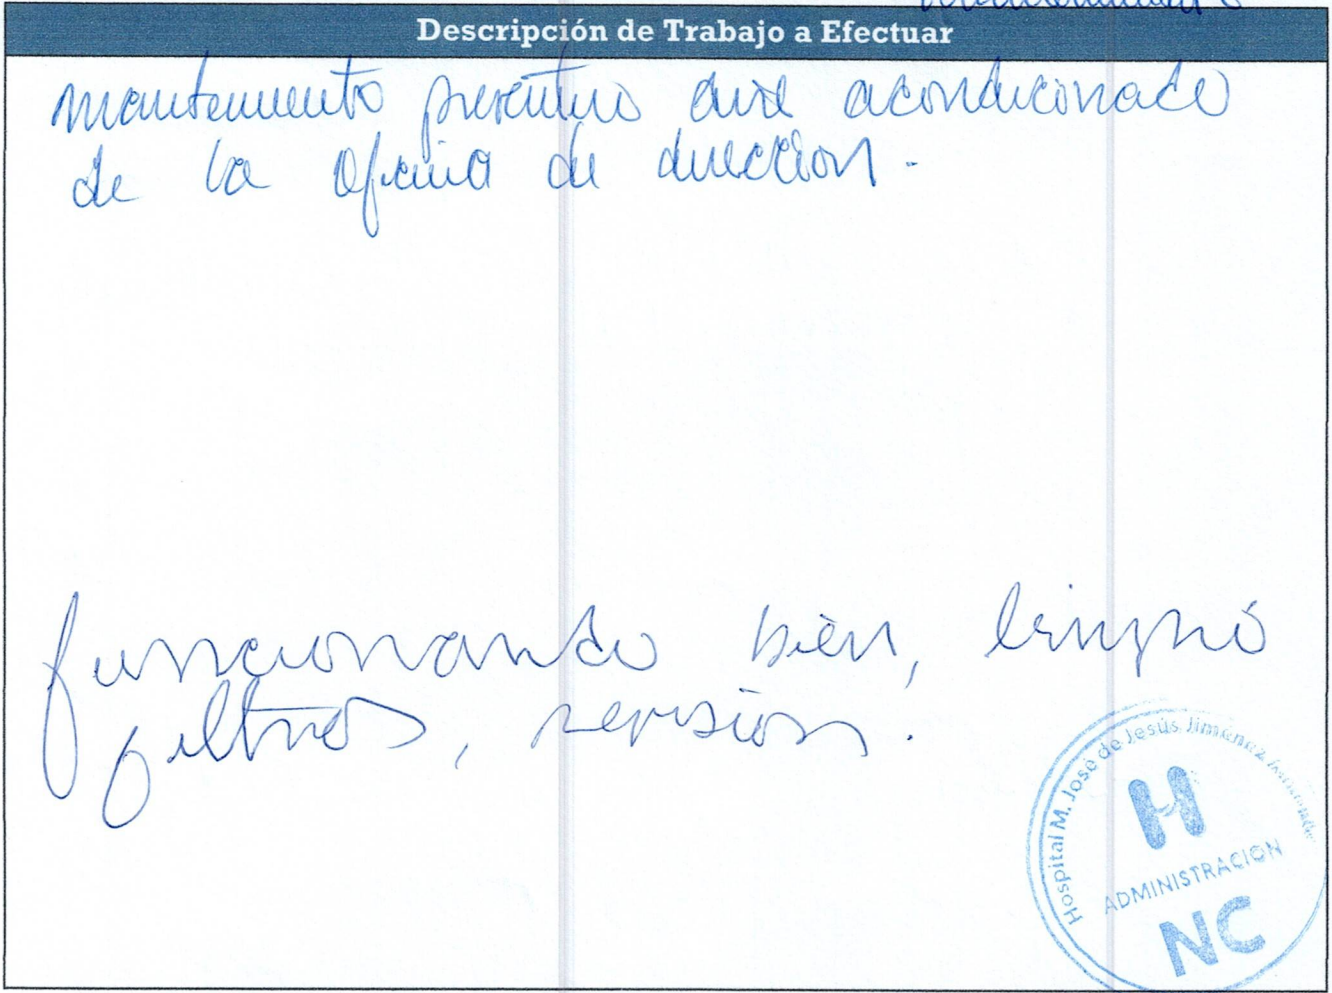 Descripción de Trabajo a Efectuar
mantenimiento preventivo aire acondicionado
de la oficina de dirección.
funcionando bien, limpió
filtros, revisión.
Hospital M. José de Jesús Jiménez
H
ADMINISTRACION
NC